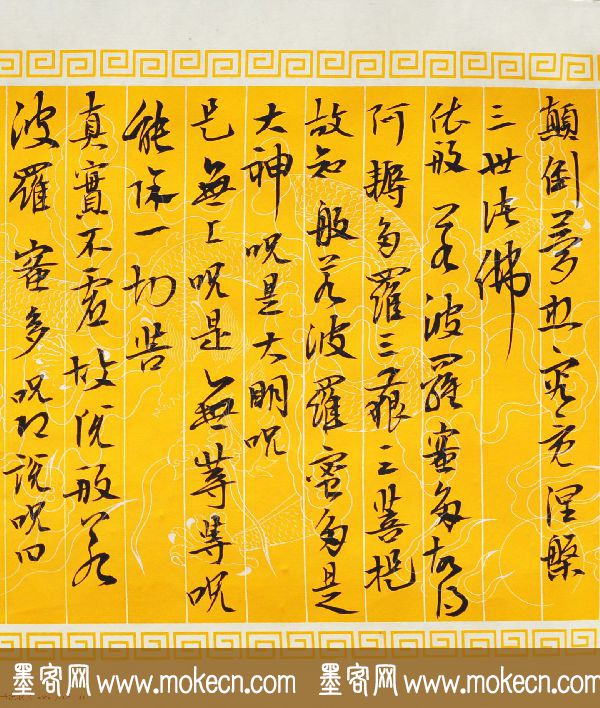 顛倒夢想究竟涅槃
三世諸佛
依般若波羅蜜多故得
阿耨多羅三藐三菩提
故知般若波羅蜜多是
大神呪是大明呪
是無上呪是無等等呪
能除一切苦
真實不虛故説般若
波羅蜜多呪即説呪曰
墨客网 www.mokecn.com 墨客网 www.mokecn.com